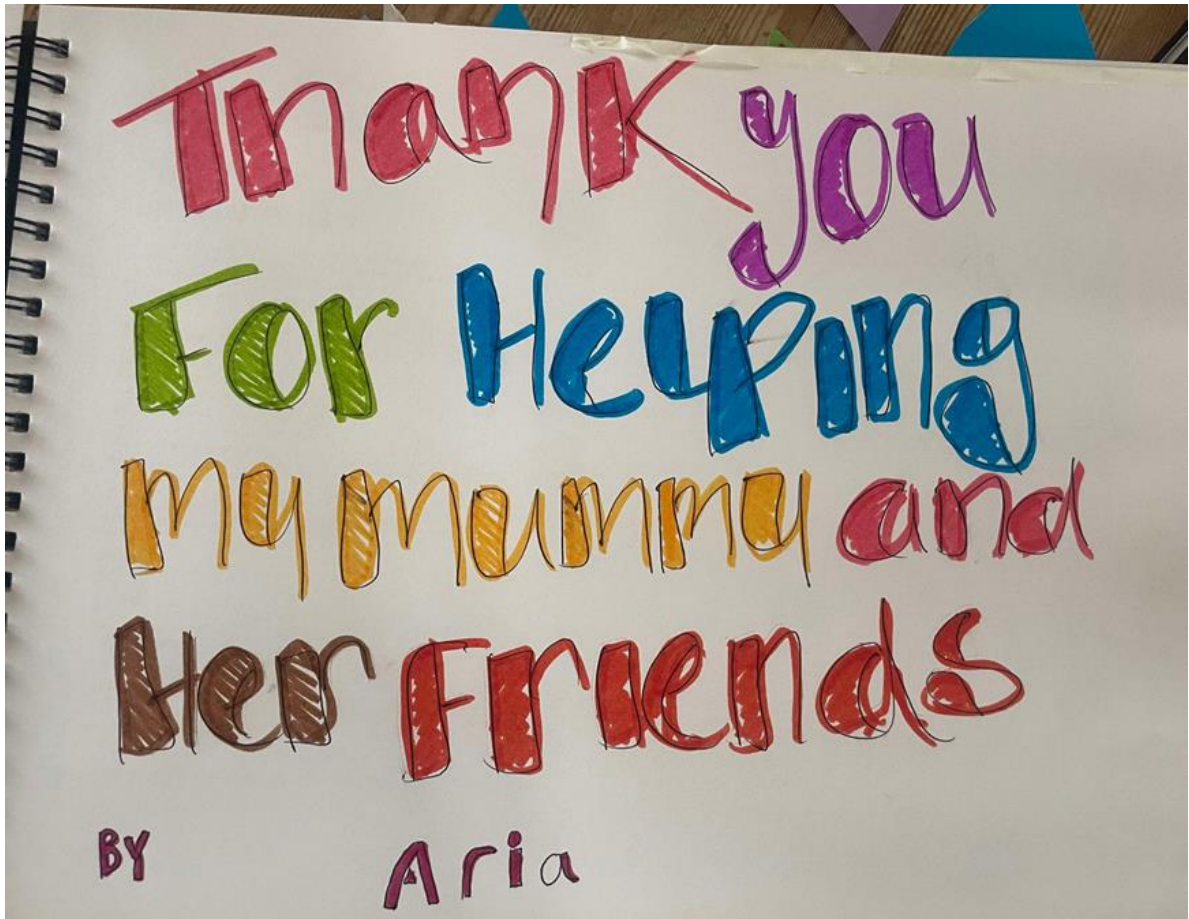 Thank you
For Helping
my mummy and
Her Friends
BY Aria